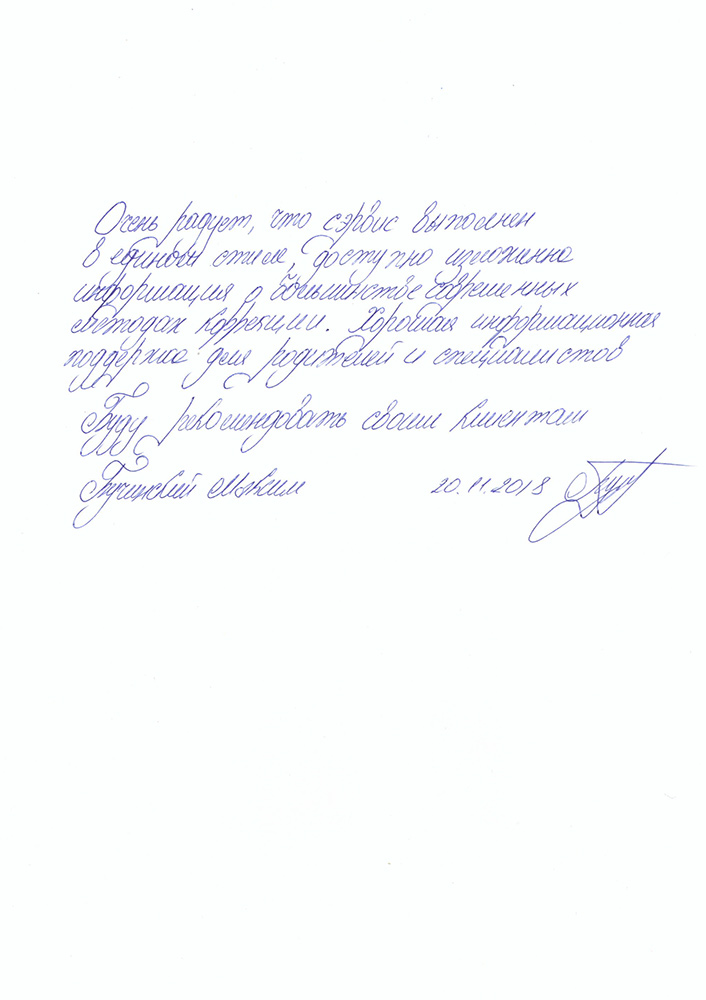 Очень радует, что сэрвис выполнен
в едином стиле, доступно изложенна
информация о большинстве современных
методах коррекции. Хорошая информационная
поддержка для родителей и специалистов
Буду рекомендовать своим клиентам
Бучинский Максим 20.11.2018